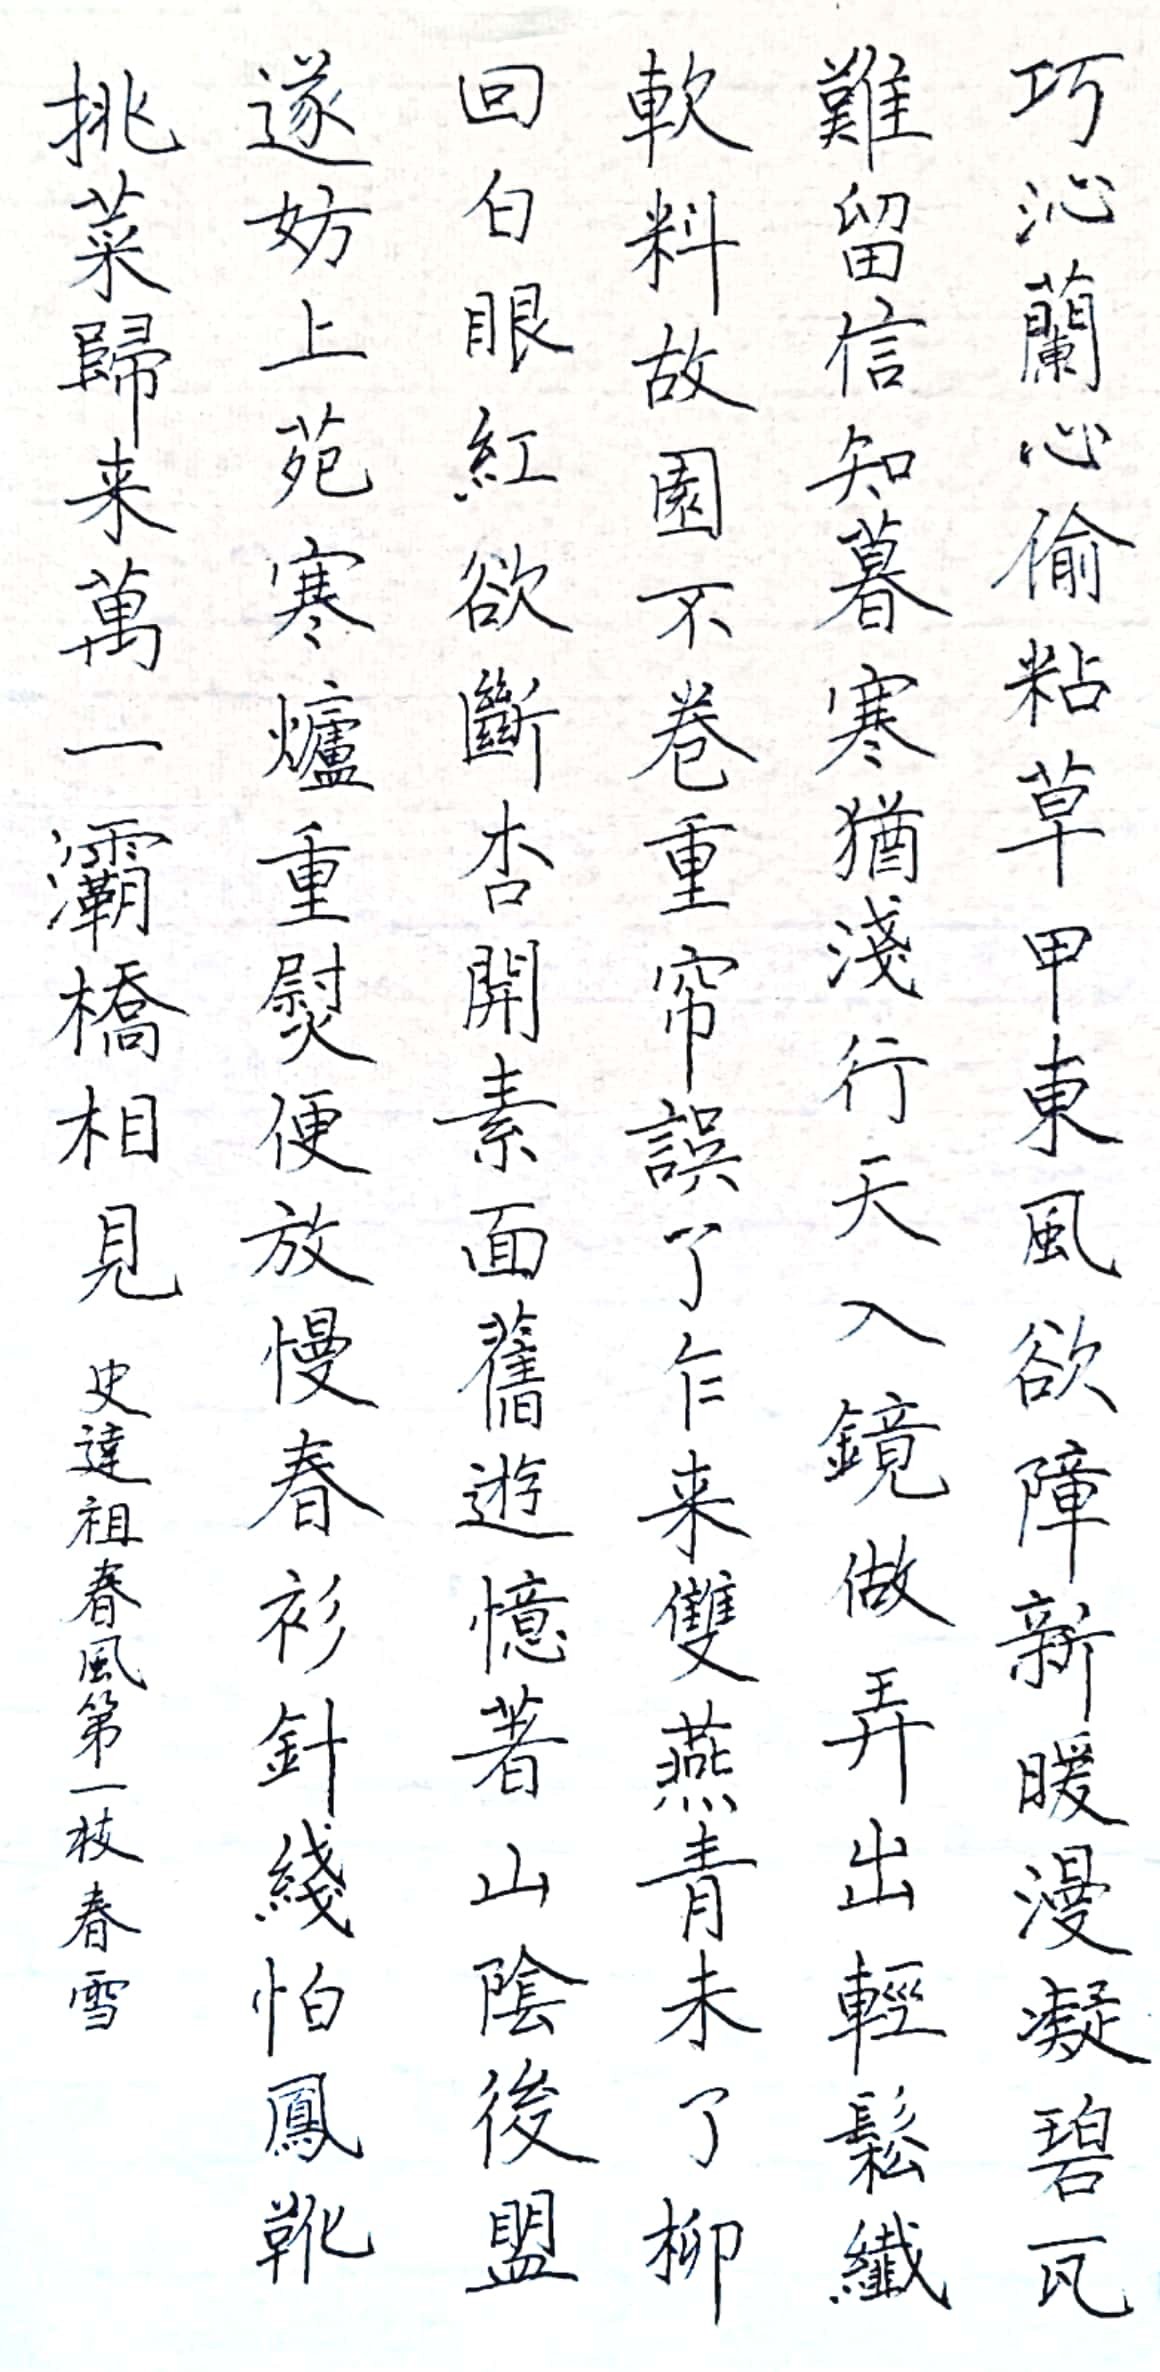 巧沁蘭心偷粘草甲東風欲障新暖漫凝碧瓦
難留信知暮寒猶淺行天入鏡做弄出輕鬆纖
軟料故園不卷重帘誤了乍来雙燕青未了柳
回白眼紅欲斷杏開素面舊遊憶著山陰後盟
遂妨上苑寒爐重熨便放慢春衫針綫怕鳳靴
挑菜歸来萬一灞橋相見
史達祖春風第一枝春雪